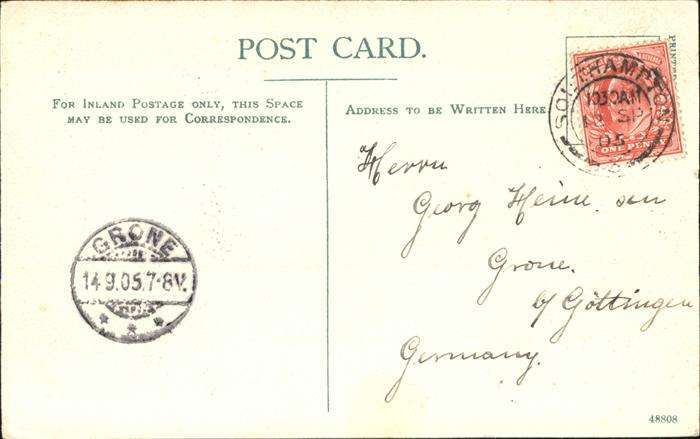 POST CARD.
FOR INLAND POSTAGE ONLY, THIS SPACE
MAY BE USED FOR CORRESPONDENCE.
ADDRESS TO BE WRITTEN HERE
SOUTHAMPTON
1030AM
SP
05
ONE PENNY
Herrn
Georg Heine sen
Grone.
b/ Göttingen
Germany.
GRONE
14.9.05.7-8V.
48808